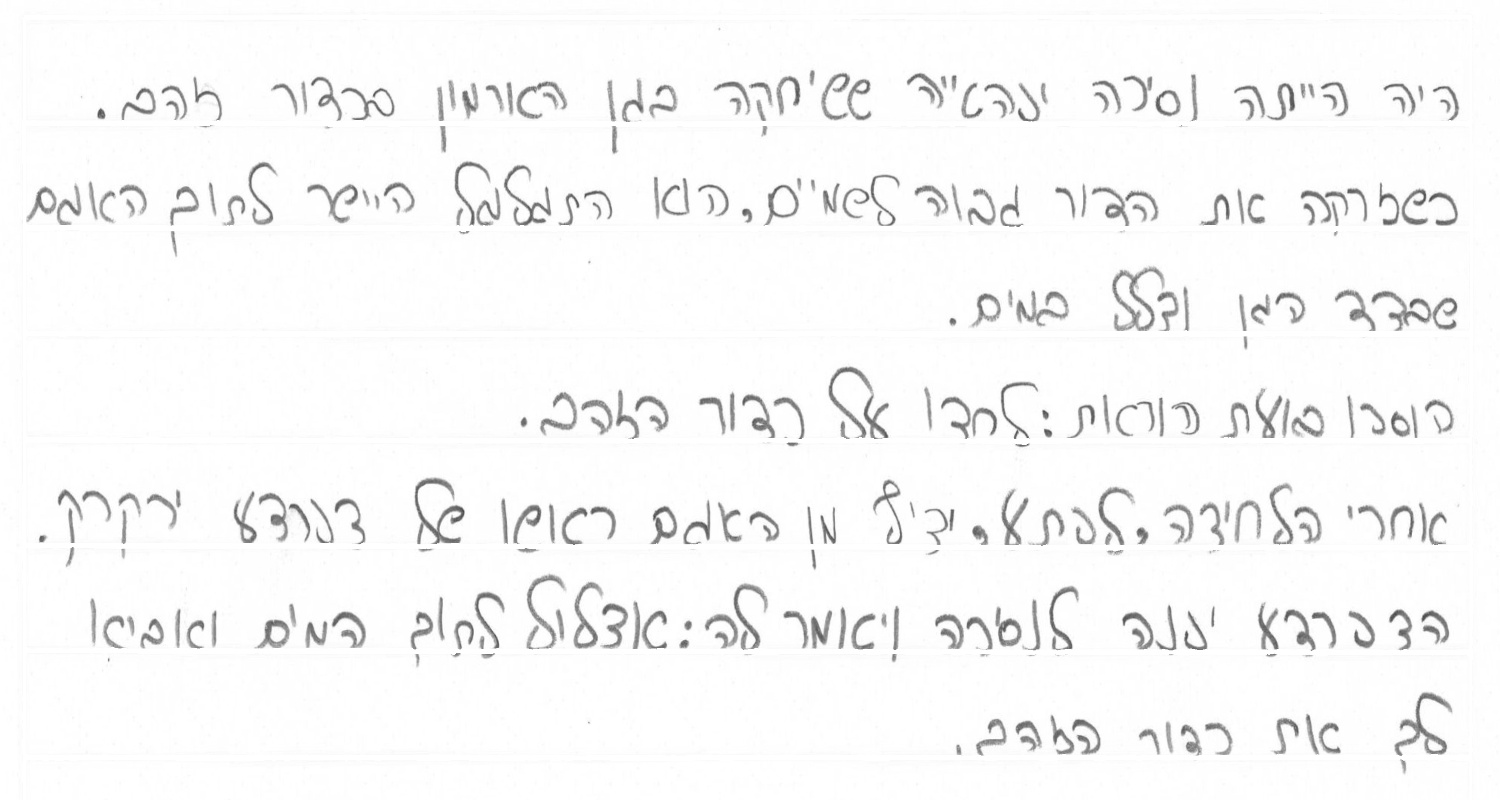 היה הייתה נסיכה ינהטייה ששיחקה בגן הארמון סכדור זהב.
כשזרקה את הדור גבוה לשמיים, הוא התגלגל היישר לתוך האגם
שבדד הגן וצלל במים.
הוסכו בועת הוראות: לחדו על כדור הזהב.
אחרי הלחידה, לפתע, יציל מן האגם ראשו של דנרדע ירקרק.
הדפרדע יננה לנסרה ויאמר לה: אצלול לתוך המים ואביא
לך את כדור הזהב.